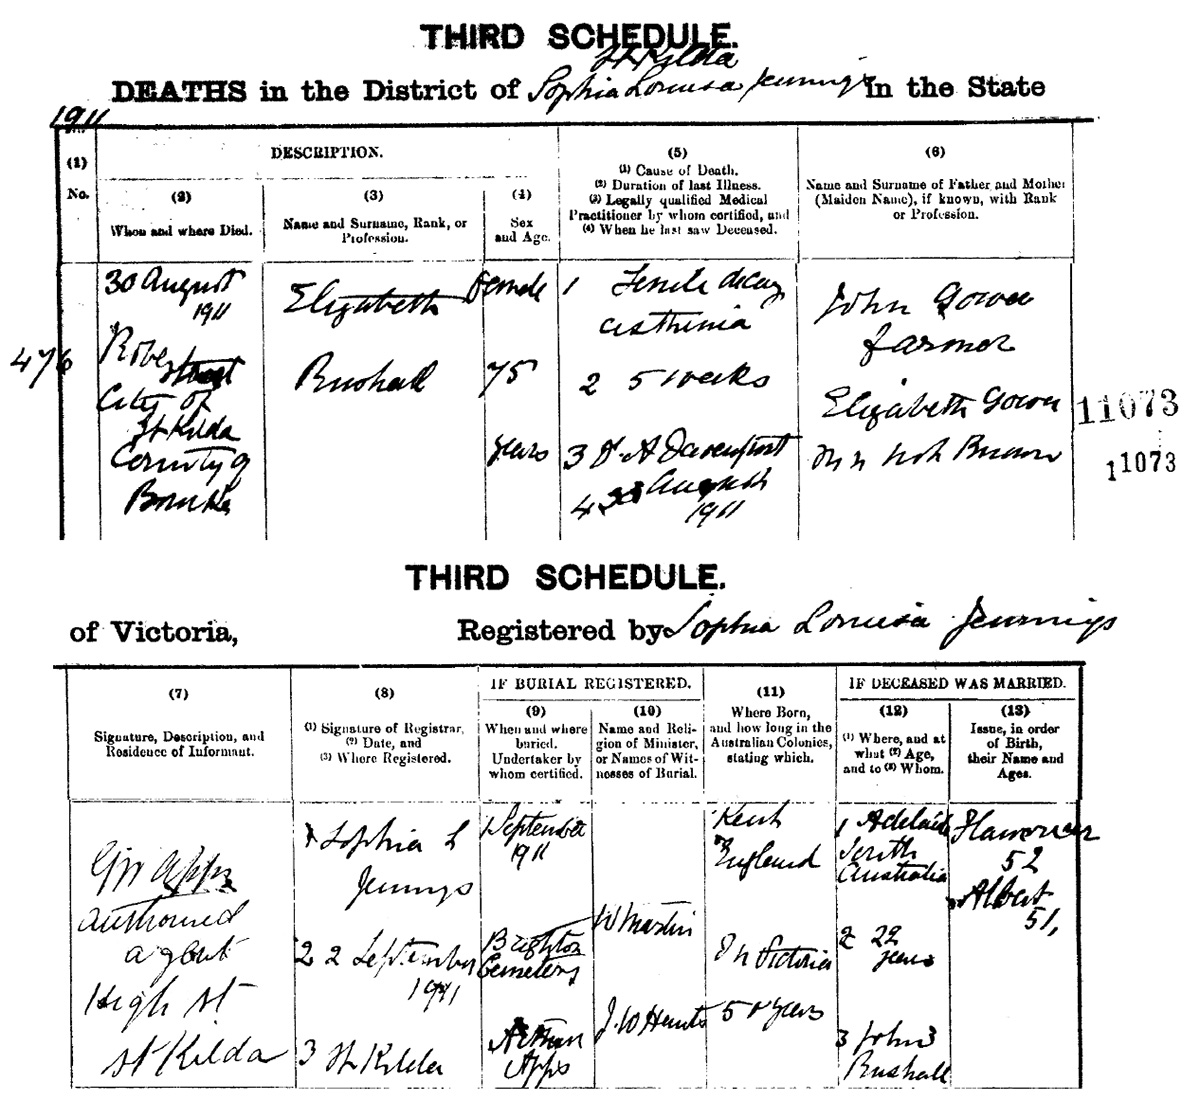 THIRD SCHEDULE.
St Kilda
DEATHS in the District of Sophia Louisa Jennings in the State
1911
(1)
No.
DESCRIPTION.
(2)
When and where Died.
(3)
Name and Surname, Rank, or
Profession.
(4)
Sex
and Age.
(5)
(1) Cause of Death.
(2) Duration of last Illness.
(3) Legally qualified Medical
Practitioner by whom certified, and
(4) When he last saw Deceased.
(6)
Name and Surname of Father and Mother
(Maiden Name), if known, with Rank
or Profession.
476
30 August
1911
Robe
street
City of
St Kilda
County of
Bourke
Elizabeth
Rushall
Female
75
years
1 Senile decay
asthenia
2 5 weeks
3 A Davenport
4 August
1911
John Gower
farmer
Elizabeth Gower
M n not Known
11073
11073
THIRD SCHEDULE.
of Victoria, Registered by Sophia Louisa Jennings
(7)
Signature, Description, and
Residence of Informant.
(8)
(1) Signature of Registrar,
(2) Date, and
(3) Where Registered.
IF BURIAL REGISTERED.
(9)
When and where
buried.
Undertaker by
whom certified.
(10)
Name and Reli-
gion of Minister,
or Names of Wit-
nesses of Burial.
(11)
Where Born,
and how long in the
Australian Colonies,
stating which.
IF DECEASED WAS MARRIED.
(12)
(1) Where, and at
what (2) Age,
and to (3) Whom.
(13)
Issue, in order
of Birth,
their Name and
Ages.
Apps
authorised
agent
High St
St Kilda
1 Sophia L
Jennings
2 2 September
1911
3 St Kilda
1 September
1911
Brighton
Cemetery
Arthur
Apps
W Martin
J. W Hunt
Kent
England
In Victoria
50 years
1 Adelaide
South
Australia
2 22
years
3 John
Rushall
52
Albert
51,